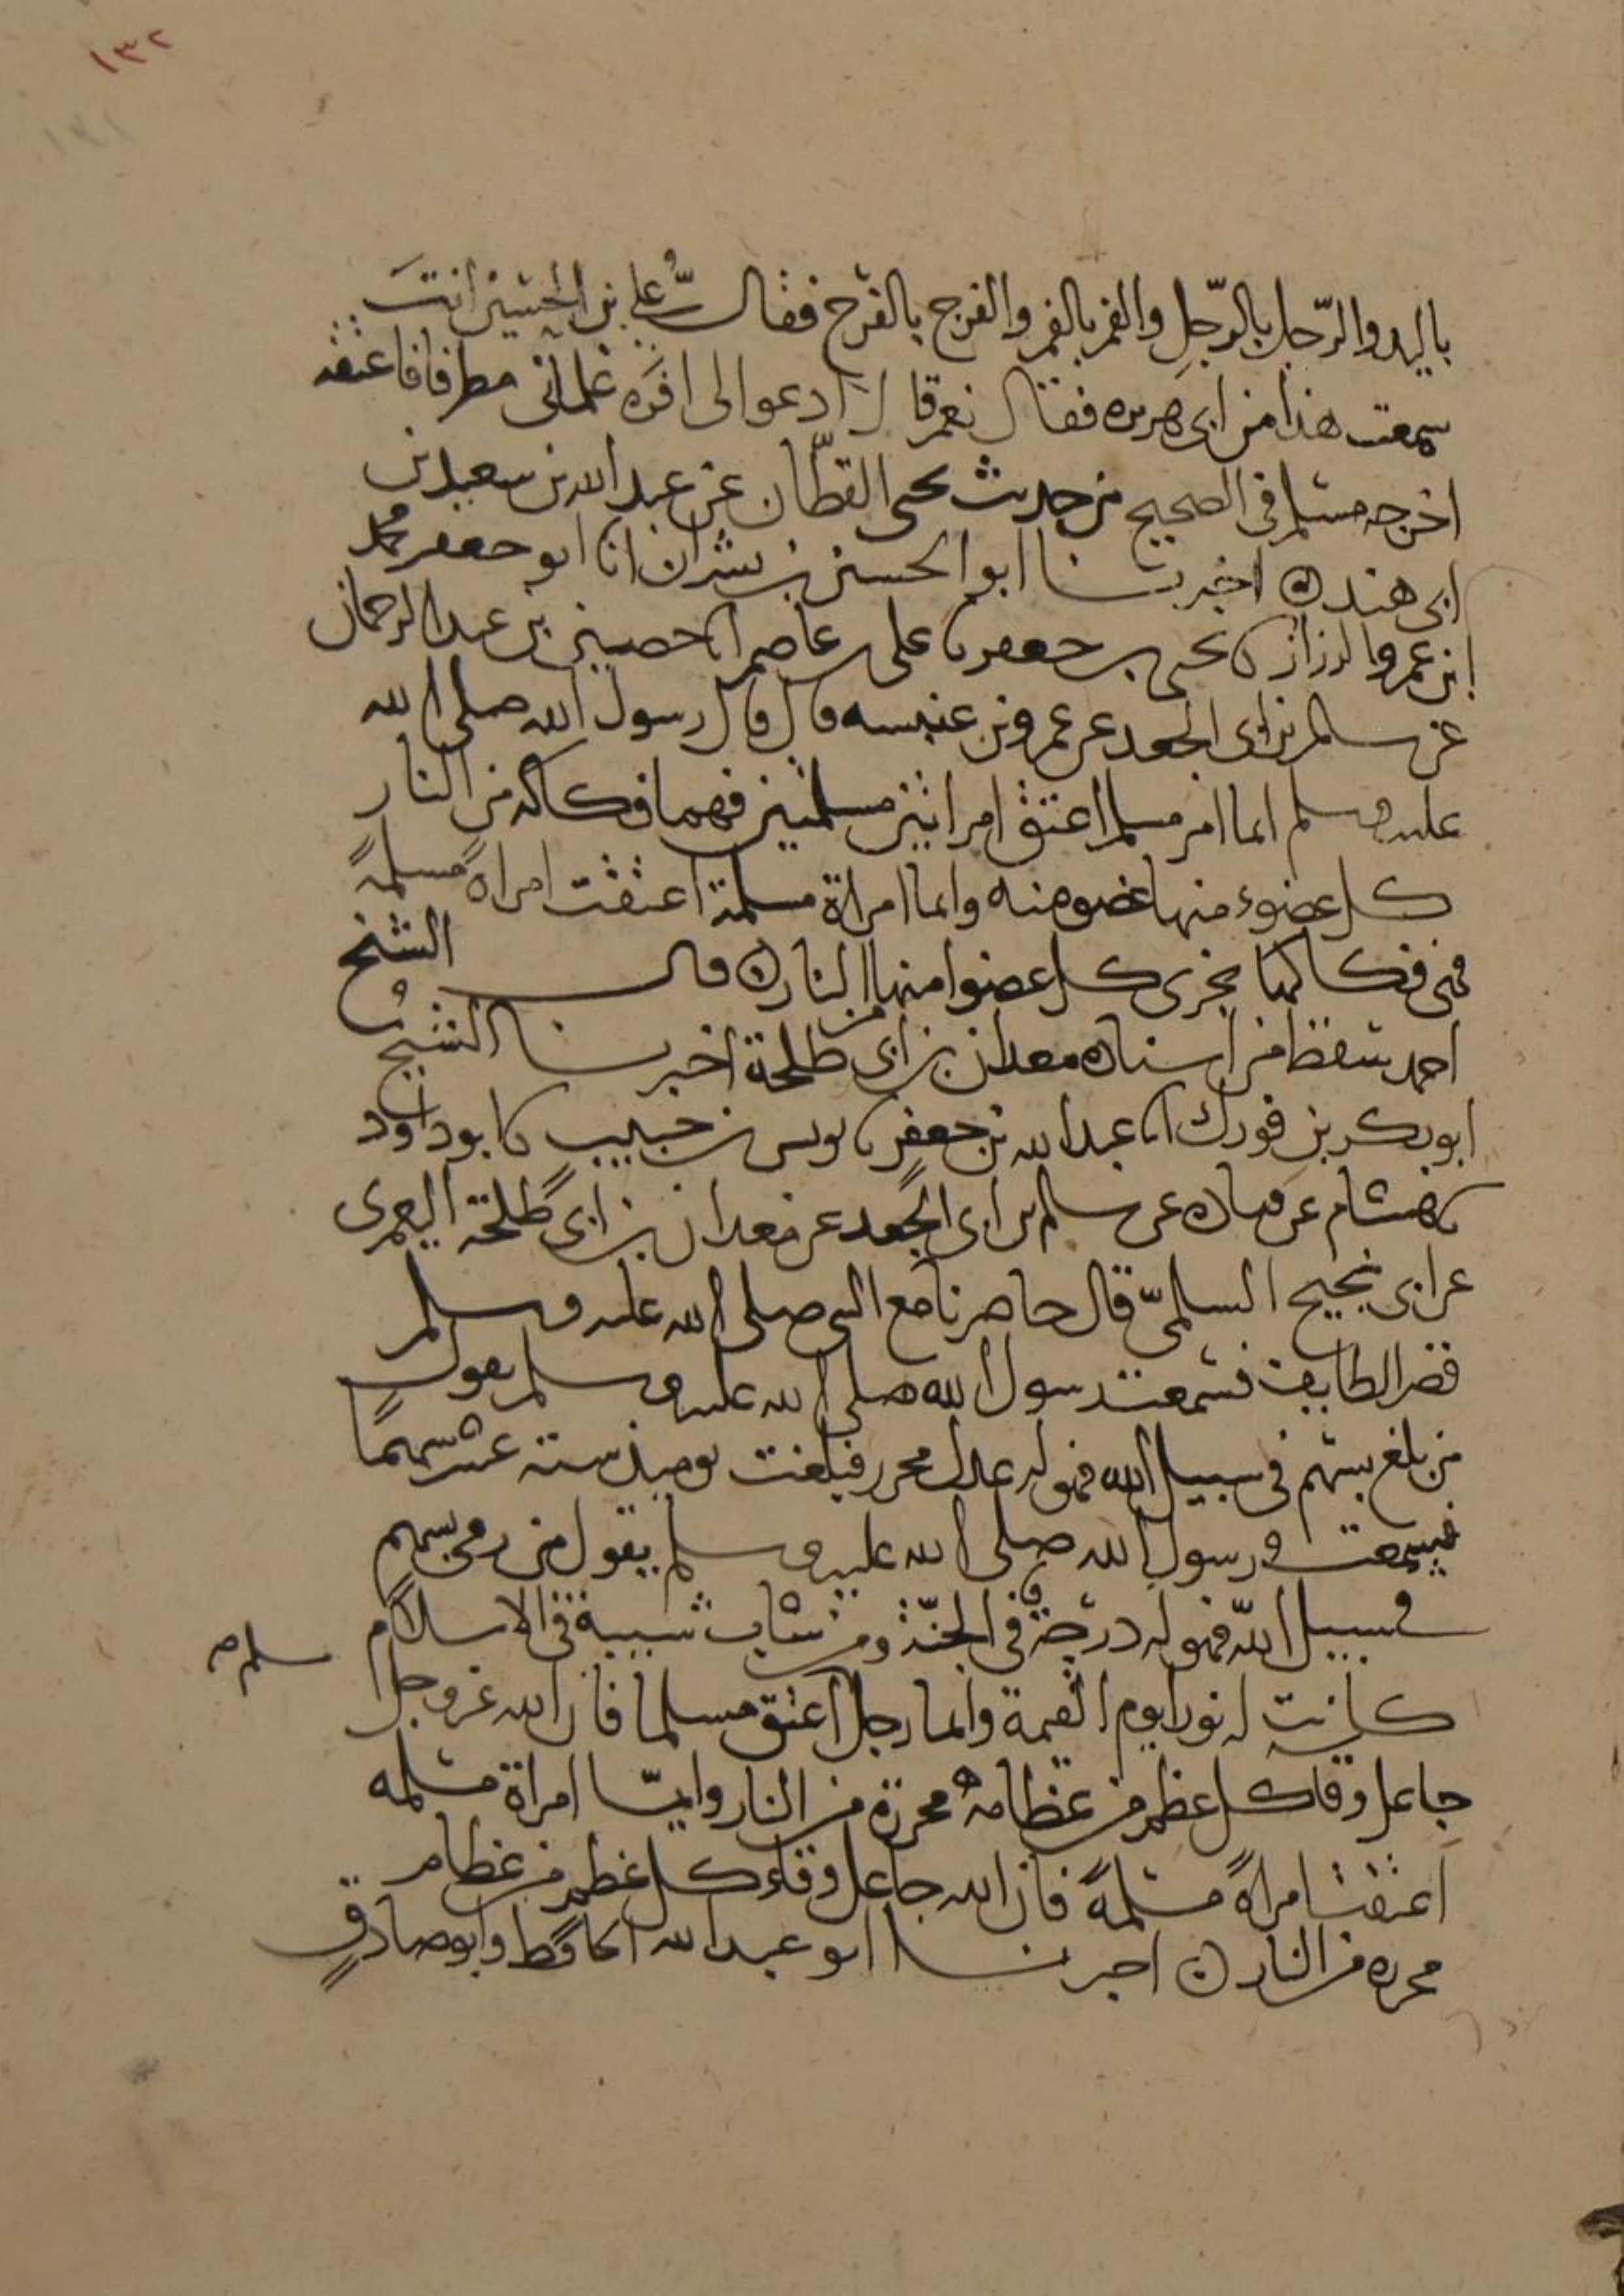 ١٣٢
باليد والرّجل بالرّجل والفم بالفم والفرج بالفرج فقال علي بن الحسين انتَ
سمعت هذا من ابى هريره فقال نعم قال ادعوا لى افَره غلمانى مطرفا فاعتقه
اخرجه مسلم فى الصحيح من حديث يحيى القطّان عن عبد الله بن سعيد بن
ابى هند ه اخبرنا ابو الحسين بن بشران انا ابو جعفر محمد
ابن عمرو الرزاز نا يحيى بن جعفر نا على بن عاصم انا حصين بن عبد الرحمان
عن سالم بن ابى الجعد عن عمرو بن عنبسه قال قال رسول الله صلى الله
عليه وسلم ايما امر مسلم اعتق امراتين مسلمتين فهما فكاكه من النار
كل عضوء منها عضو منه وايما امراة مسلمة اعتقت امراه مسلمةً
فهى فكاكها يجزى كل عضوا منها من النار ه قال الشيخ
احمد سقط من اسناده معدان بن ابى طلحة اخبرنا الشيخ
ابو بكر بن فورك انا عبد الله بن جعفر نا يونس بن حبيب نا بو داود
نا هشام عن قتاده عن سالم بن ابى الجعد عن معدان بن ابى طلحة اليعمرى
عن ابى نجيح السلمىّ قال حاصرنا مع النبى صلى الله عليه وسلم
قصر الطايف فسمعت رسول الله صلى الله عليه وسلم يقول
من بلغ بسهم فى سبيل الله فهو له عدل محرر فبلغت يوميذ ستة عشر سهمًا
فسمعت رسول الله صلى الله عليه وسلم يقول من رمى بسهم
فى سبيل الله فهو له درجة فى الجنّة ومن شاب شيبة فى الاسلام
كانت له نورا يوم القيمة وايما رجل اعتق مسلما فان الله عز وجل
مسلم
جاعل وقا كل عظم من عظامه محررة من النار وايّما امراة مسلمه
اعتقت امراةً مسلمةً فان الله جاعل وقاء كل عظم من عظام
محرره من النار ه اخبرنا ابو عبد الله الحافظ وابو صادق